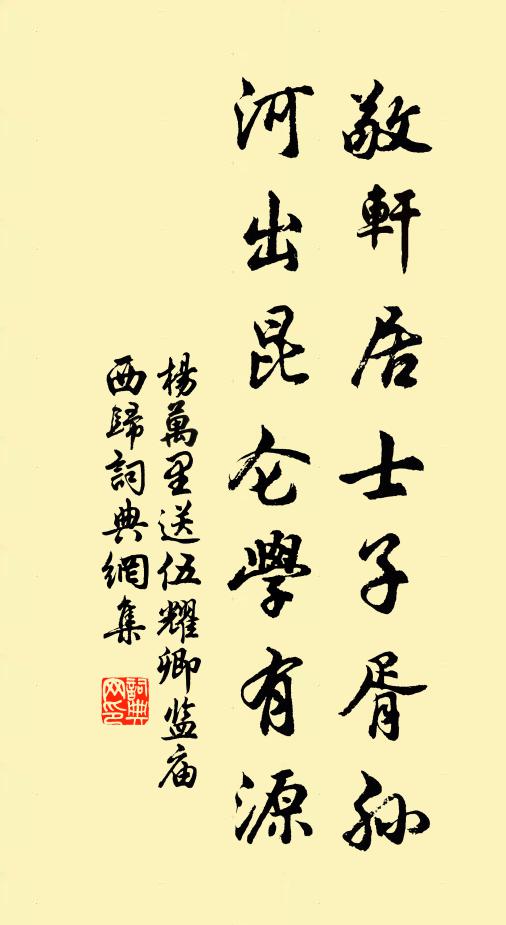 敬軒居士子胥孙
河出昆仑學有源
楊萬里送伍耀卿监庙
西歸詞典網集
詞典
网印